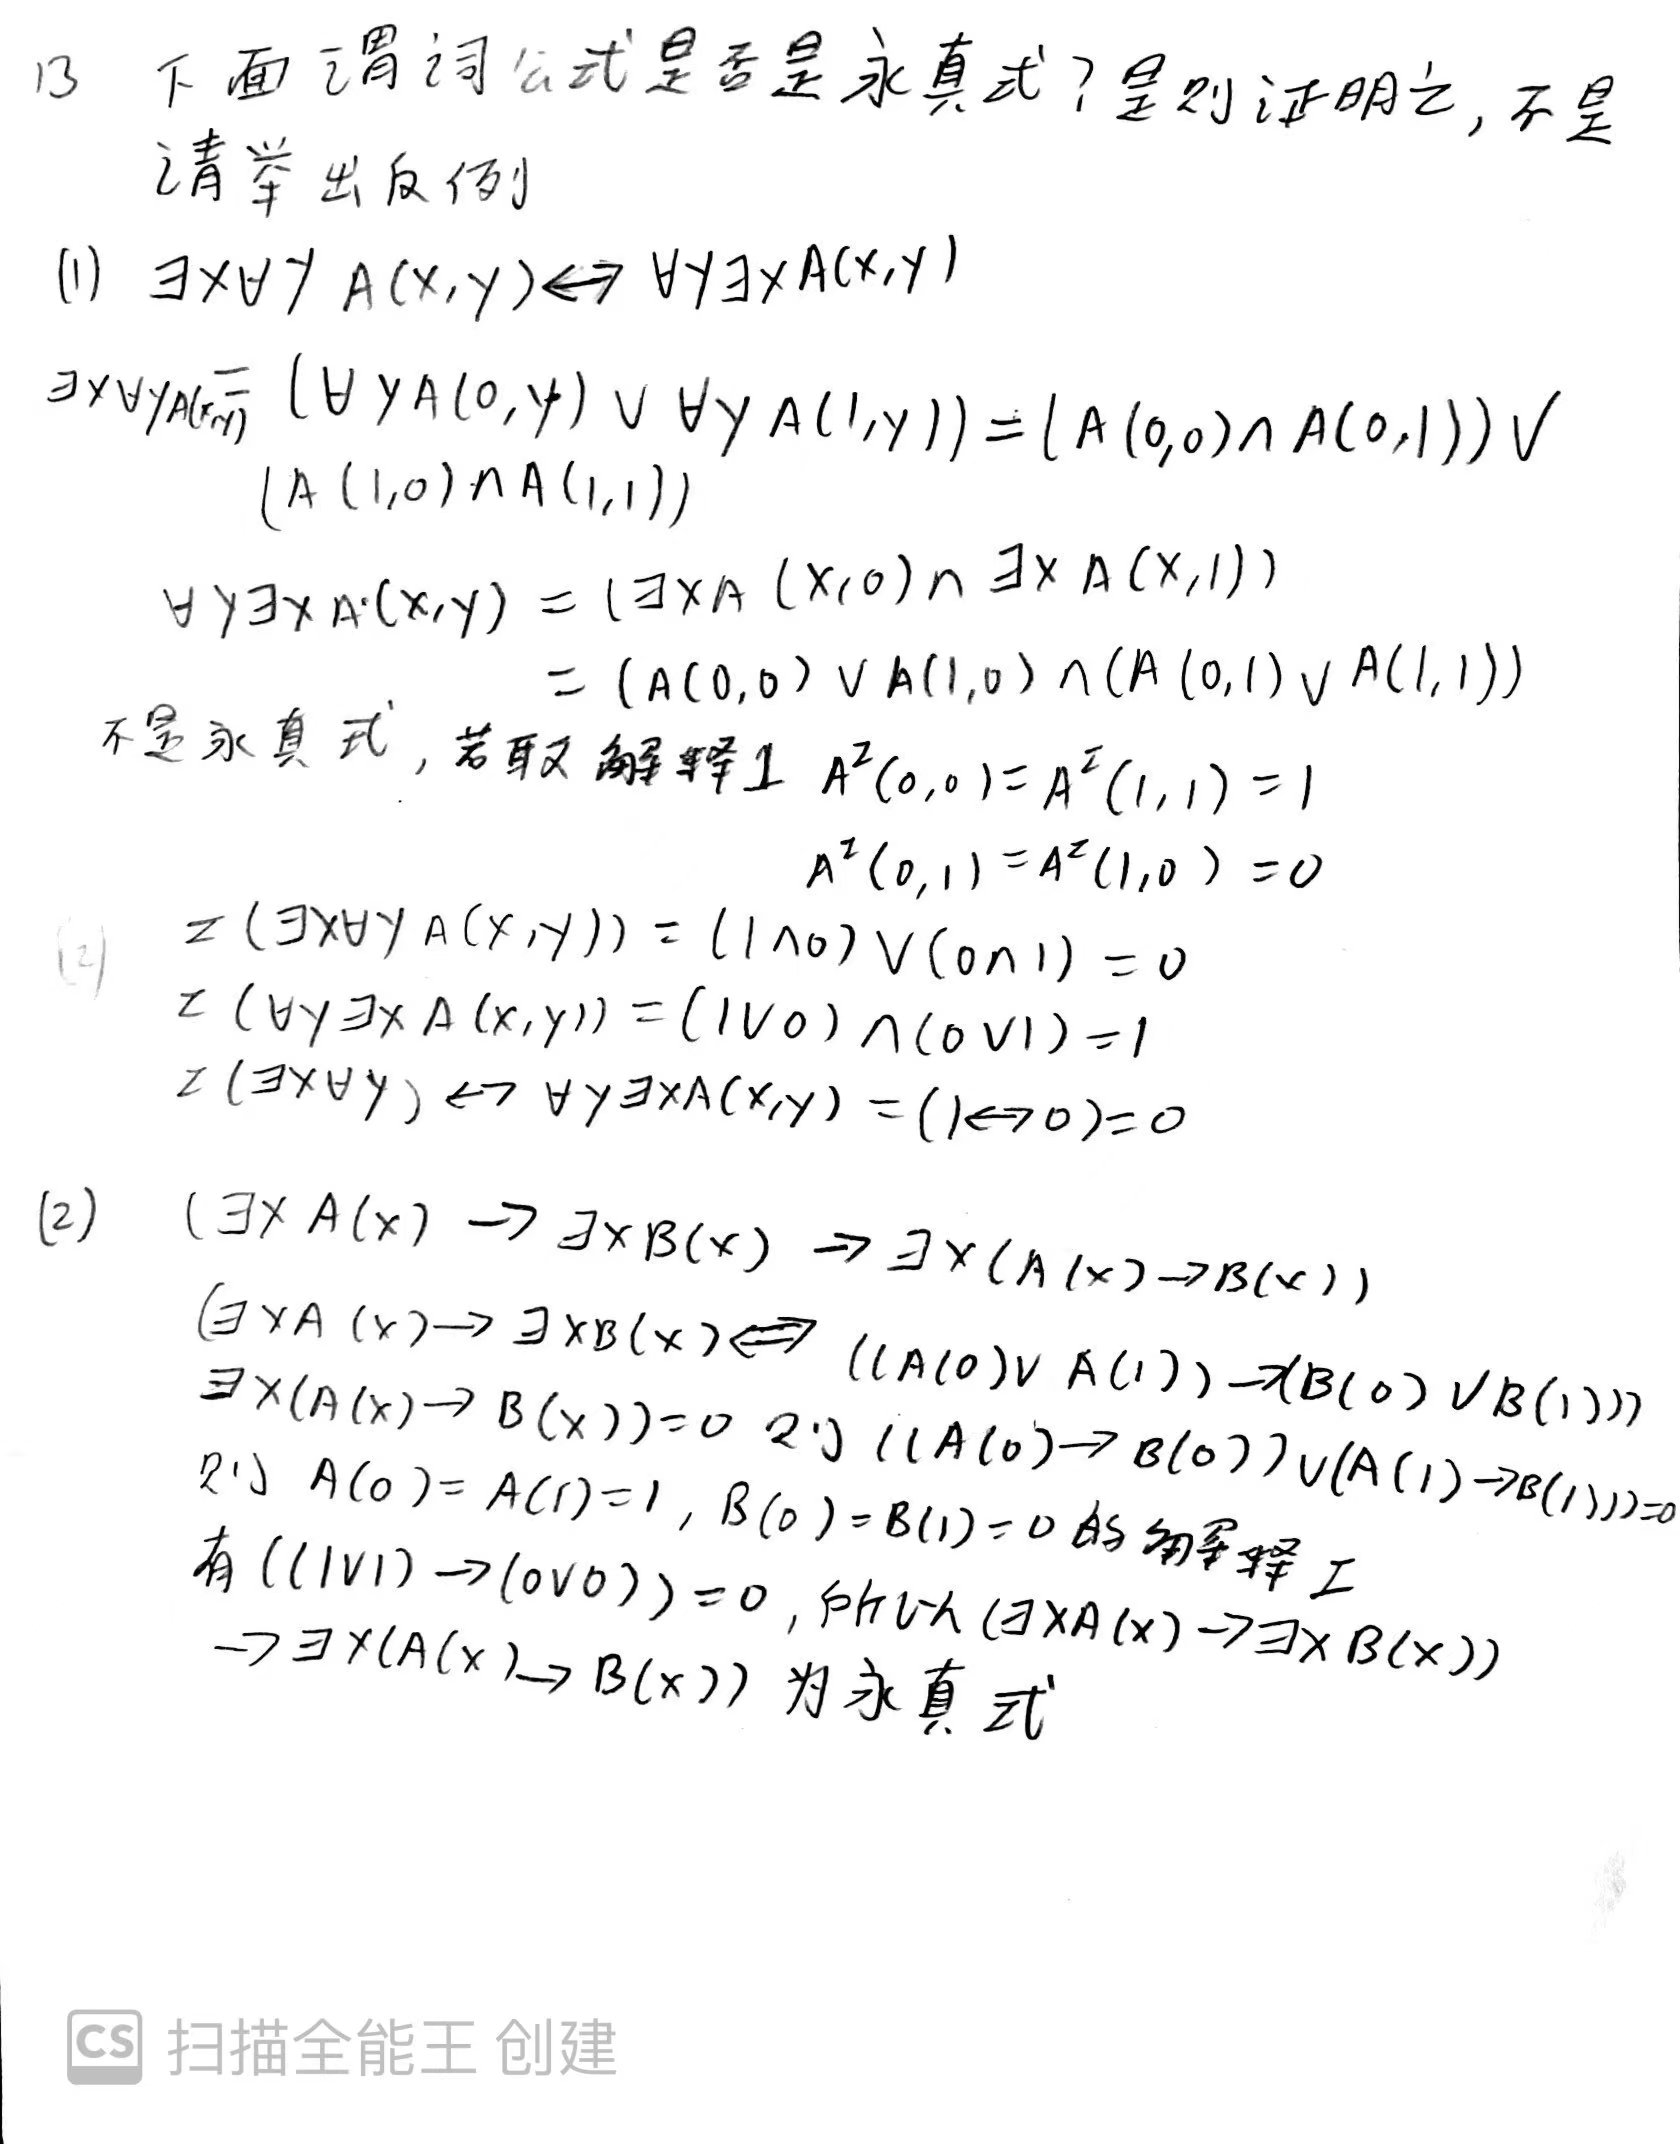 13 下面谓词公式是否是永真式?是则证明之,不是
请举出反例
(1) ∃x∀y A(x,y)↔ ∀y∃xA(x,y)
∃x∀yA(x,y) = (∀yA(0,y) ∨ ∀yA(1,y)) = (A(0,0)∩A(0,1))∨
(A(1,0)∩A(1,1))
∀y∃xA(x,y) = (∃xA(x,0)∩∃xA(x,1))
= (A(0,0)∨A(1,0)∩(A(0,1)∨A(1,1))
不是永真式,若取解释I Aᴵ(0,0)=Aᴵ(1,1)=1
Aᴵ(0,1)=Aᴵ(1,0)=0
I(∃x∀yA(x,y)) = (1∩0)∨(0∩1)=0
(2)
I(∀y∃xA(x,y)) = (1∨0)∩(0∨1)=1
I(∃x∀y)↔∀y∃xA(x,y) = (1↔0)=0
(2) (∃xA(x) → ∃xB(x) → ∃x(A(x)→B(x))
(∃xA(x)→∃xB(x)⇔((A(0)∨A(1))→(B(0)∨B(1)))
∃x(A(x)→B(x))=0 则((A(0)→B(0))∨(A(1)→B(1)))=0
则 A(0)=A(1)=1,B(0)=B(1)=0的解释I
有((1∨1)→(0∨0))=0,所以(∃xA(x)→∃xB(x))
→∃x(A(x)→B(x))为永真式
CS 扫描全能王 创建